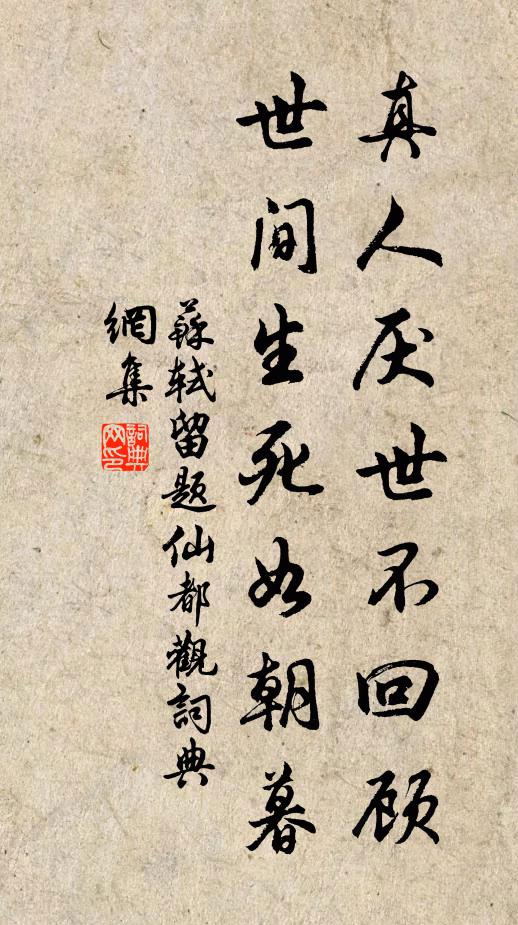 真人厌世不回顾
世间生死如朝暮
蘇轼留题仙都觀詞典
網集
詞典
网印